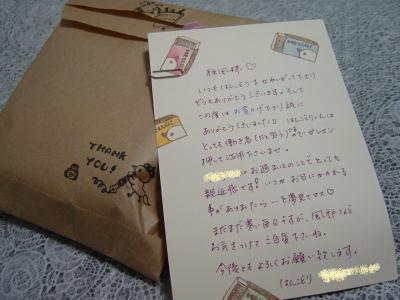 THANK
YOU!
雅風様♡
いつもはんこうをかわいがって下さり
どうもありがとうございます。そして
この度はお買い上げ下さり誠に
ありがとうございました!! はんこうくんは
とっても働き者(だと思う)なのでガンガン
押して活用下さいませ。
にお住まいとのことでとっても
親近感です!いつかお目にかかれる
事がありましたら…と夢見てます♡
まだまだ寒い毎日ですが、風邪など
お気をつけてご自愛下さいね。
今後ともよろしくお願い致します。
はんこうり